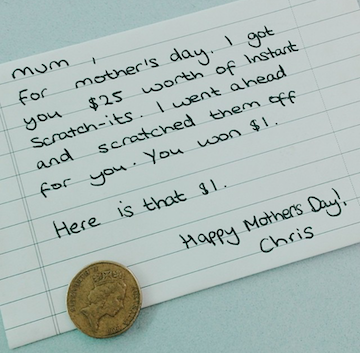 mum,
For mother's day. I got
you $25 worth of Instant
Scratch-its. I went ahead
and scratched them off
for you. You won $1.
Here is that $1.
Happy Mother's Day!
Chris